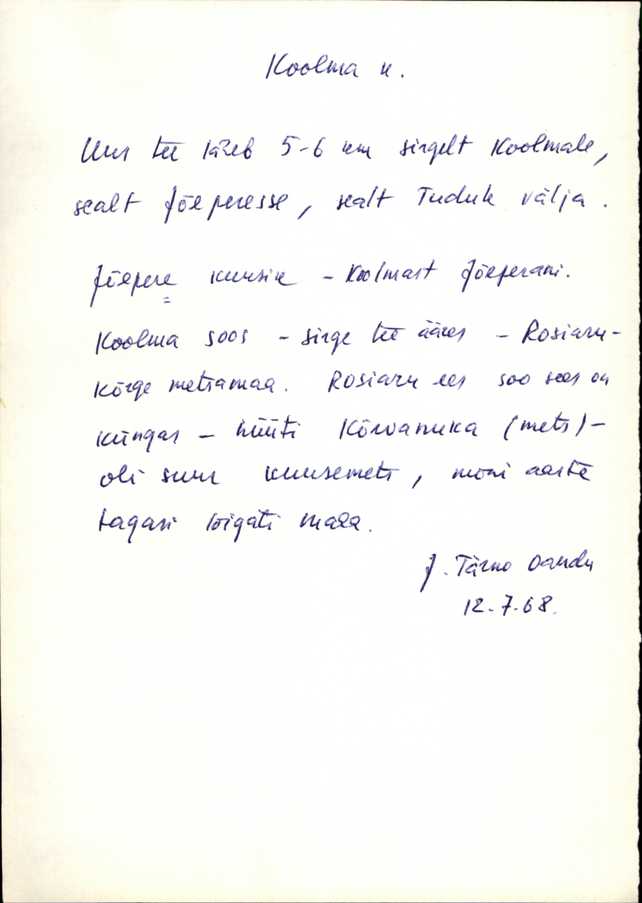 Koolma k.
Uus tee läheb 5-6 km sirgelt Koolmale,
sealt Jõeperesse, sealt Tudule välja.
Jõepere kuusik - Koolmast Jõepereni.
Koolma soos - sirge tee ääres - Rosiaru-
kõrge metsamaa. Rosiaru ees soo sees on
küngas - hüüti Kõrvanuka (mets) -
oli suur kuusemets, mõni aasta
tagasi lõigati maha.
J. Tärno Oandu
12.7.68.